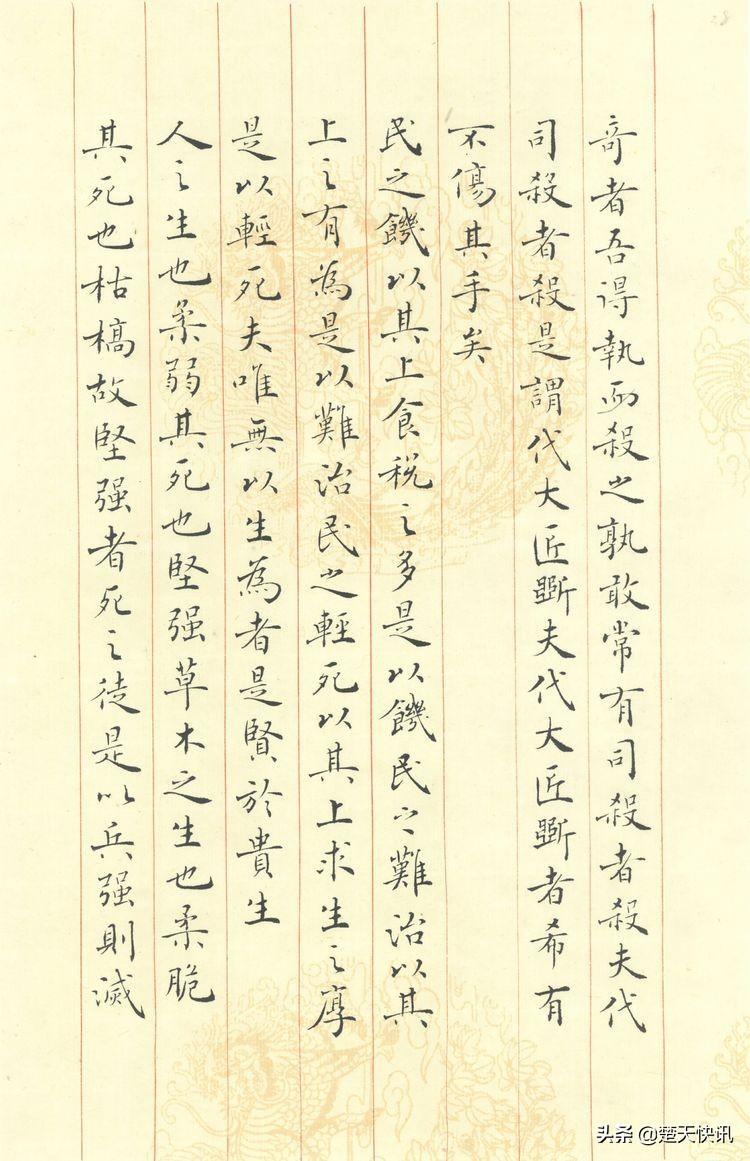 奇者吾得執而殺之孰敢常有司殺者殺夫代
司殺者殺是謂代大匠斲夫代大匠斲者希有
不傷其手矣
民之饑以其上食稅之多是以饑民之難治以其
上之有為是以難治民之輕死以其上求生之厚
是以輕死夫唯無以生為者是賢於貴生
人之生也柔弱其死也堅强草木之生也柔脆
其死也枯槁故堅强者死之徒是以兵强則滅
28
头条 @楚天快讯